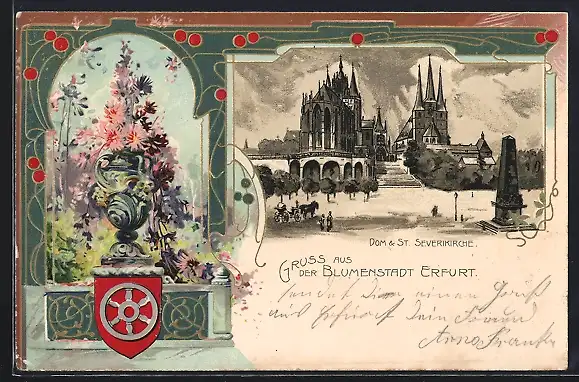 DOM & ST. SEVERIKIRCHE.
GRUSS AUS
DER BLUMENSTADT ERFURT.
sendet Dir einen Gruß
aus Erfurt Dein Freund
Arno